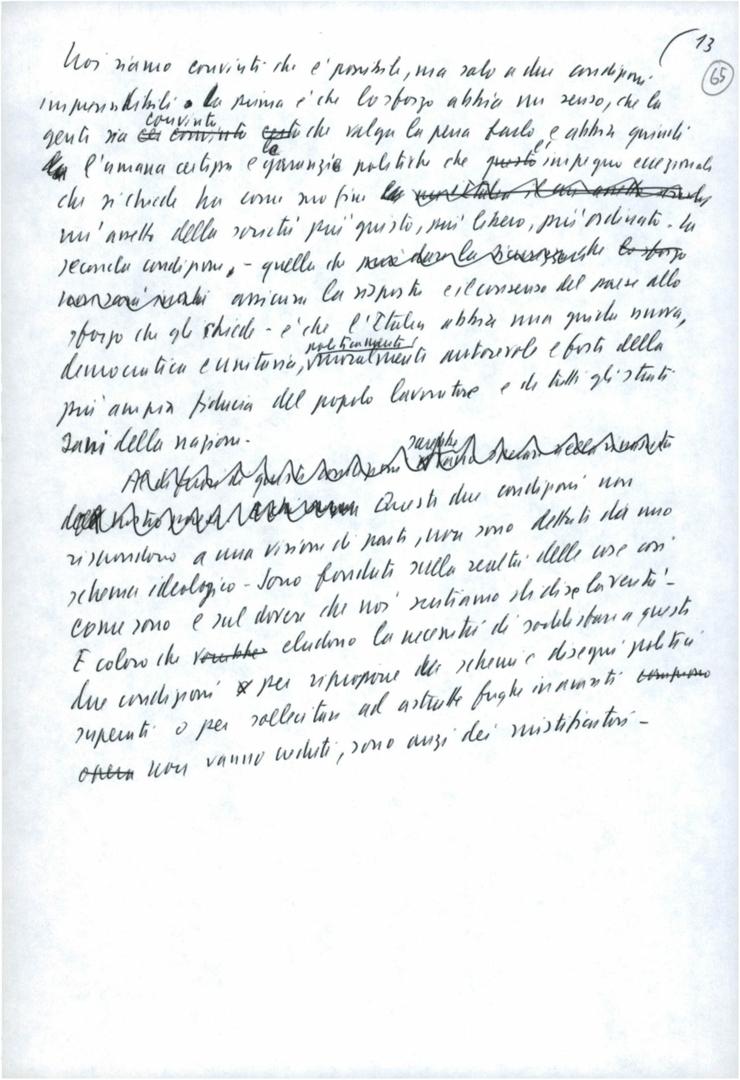 13
65
Noi siamo convinti che è possibile, ma solo a due condizioni
imprescindibili. La prima è che lo sforzo abbia un senso, che la
convinta
gente sia che valga la pena farlo, e abbia quindi
la
l'umana certezza e garanzie politiche che l'impegno eccezionale
che si chiede ha come suo fine
un'assetto della società più giusto, più libero, più ordinato. La
seconda condizione, - quella che
assicura la risposta e il consenso del paese allo
sforzo che gli chiede - è che l'Italia abbia una guida nuova,
politicamente
democratica e unitaria, moralmente autorevole e forte della
più ampia fiducia del popolo lavoratore e di tutti gli strati
sani della nazione.
Queste due condizioni non
rispondono a una visione di parte, non sono dettate da uno
schema ideologico - Sono fondate sulla realtà delle cose così
come sono e sul dovere che noi sentiamo di dire la verità -
E coloro che eludono la necessità di soddisfare a queste
due condizioni per riproporre schemi e disegni politici
superati o per sollecitare ad astratte fughe in avanti
non vanno creduti, sono anzi dei mistificatori -